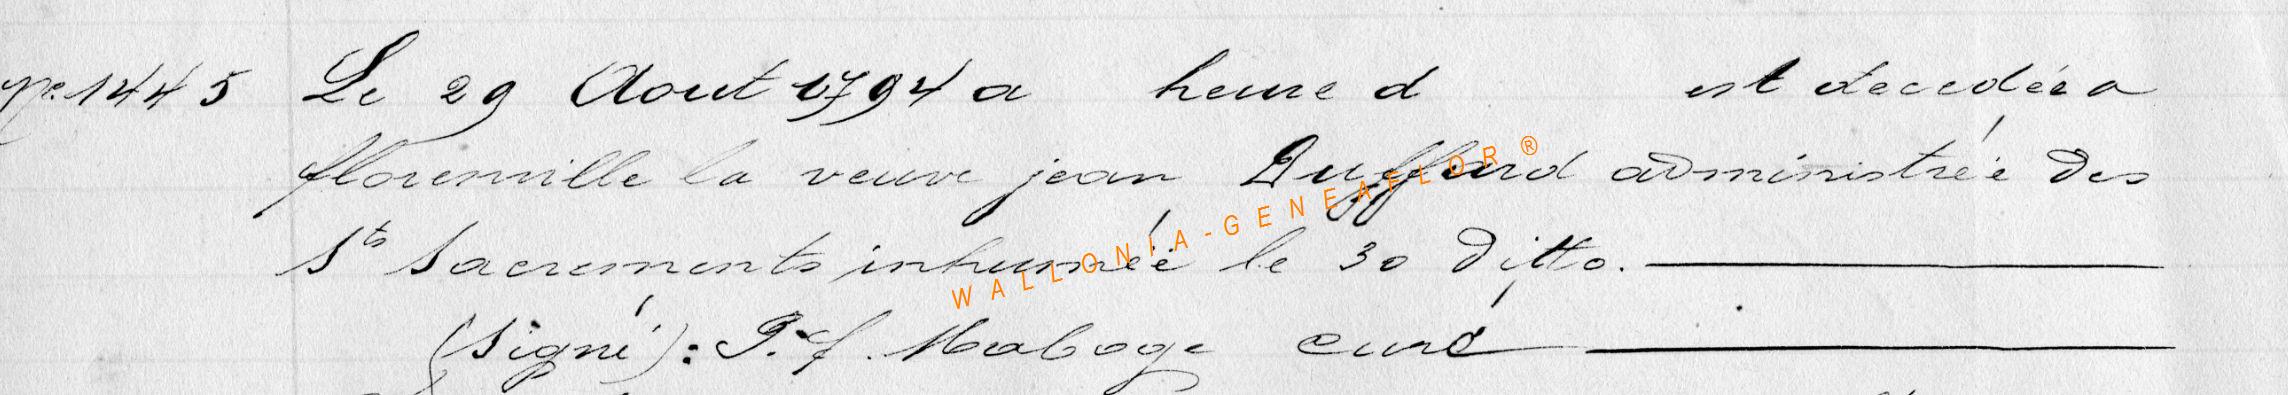 N° 1445 Le 29 Aout 1794 a heure d est decedée a
florenville la veuve jean Duffard administrée des
Sts Sacrements inhumée le 30 ditto.
(signé): P. f. Maboge curé
WALLONIA-GENEAFLOR®